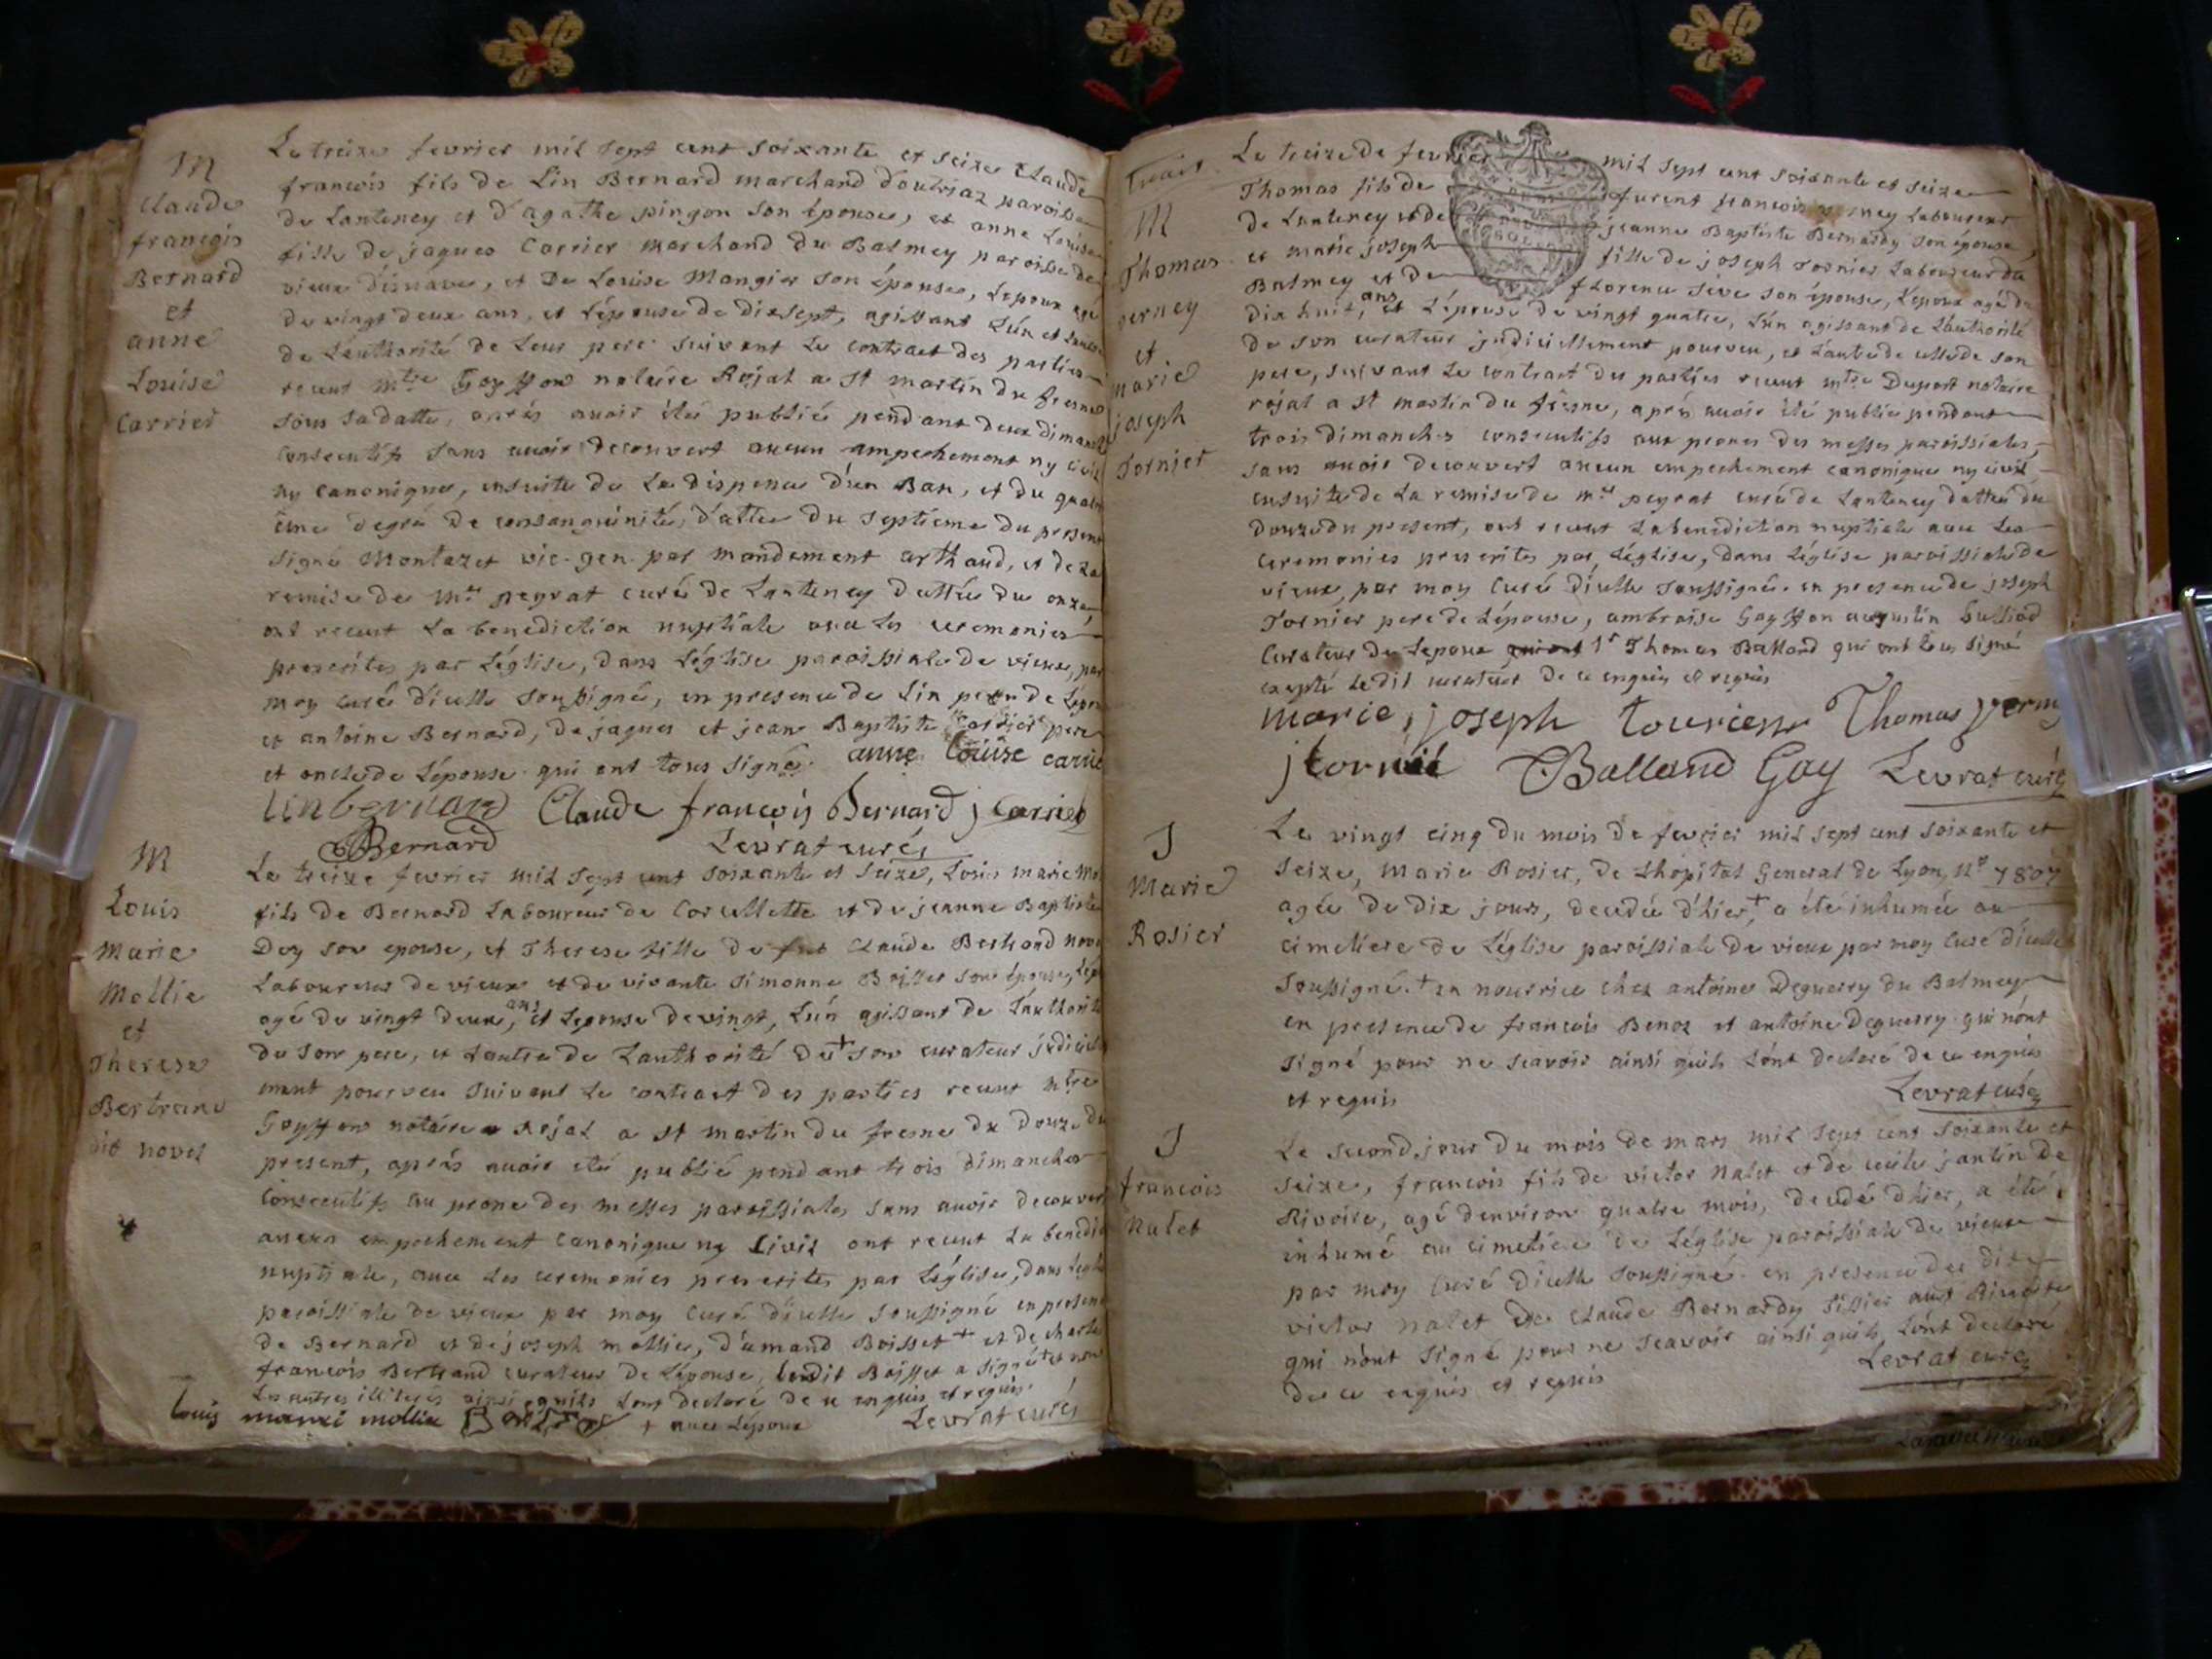 M
Claude
francois
Bernard
et
anne
Louise
Carrier
Le treize fevrier mil sept cent soixante et seize Claude
francois fils de Lin Bernard marchand d'outriaz paroisse
de Lanteney et d'agathe pingon son épouse, et anne Louise
fille de jaques Carrier marchand du Balmey paroisse de
vieux d'isnave, et De Louise Mangier son Épouse, Lepoux agé
de vingt deux ans, et L'épouse de dixsept, agissant L'ún et
de L'authorité de Leur pere suivant Le contract des parties
recut mtre Goyffon notaire Rojal a st martin du fresne
sous sa datte, aprés avoir été publié pendant deux dimanches
Consecutifs sans avoir decouvert aucun ampechement ny civil
ny canonique, ensuite de La dispence d'un Ban, et du quatri
eme degré de consanguinité, dattee du septieme du present
signé Montazet vic. gen. par mandement arthaud, et de La
remise de mre peyrat curé de Lanteney dattée du onze,
ont recut La benediction nuptiale avec Les ceremonies
prescrites par L'église, dans L'église paroissiale de vieux, par
moy curé d'icelle soussigné, en presence de Lin pere de Lepoux
et antoine Bernard, de jaques et jean Baptiste Carrier pere
et oncle de L'épouse qui ont tous signé. anne Louise carrie
Linbernard Claude francois Bernard j Carrier
Bernard Levrat curé
M
Louis
Marie
Mollie
et
Therese
Bertrand
dit novel
Le treize fevrier mil sept cent soixante et seize, Louis marie
fils de Bernard Laboureur de Corcellette et de jeanne Baptiste
Dey son epouse, et Therese fille de feu Claude Bertrand novel
Laboureur de vieux et de vivante simonne Boisset son épouse,
agé de vingt deux ans, et Lepouse de vingt, L'ún agissant de L'authorité
de son pere, et Lautre de Lauthorité de + son curateur judiciel
ment pourveu suivant Le contract des parties recut mtre
Goyffon notaire Rojal a st martin du fresne du douze du
present, aprés avoir été publié pendant trois dimanches
Consecutifs au prone des messes paroissiales sans avoir decouvert
aucun empechement canonique ny Civil ont recut La benediction
nuptiale, avec Les ceremonies prescrites par L'église, dans L'église
paroissiale de vieux par moy Curé d'icelle soussigné en presence
de Bernard et de joseph mollie, d'amand Boisset + et de charle
francois Bertrand curateur de L'épouse, Ledit Boisset a signé + et non
Les autres illiterés ainsi quils Lont declaré de ce enquis et requis.
Louis marie mollie + avec L'époux Levrat curé
M
Thomas
verney
et
marie
joseph
Tornier
Le treize de fevrier mil sept cent soixante et seize
Thomas fils de francois verney Laboureur
de Lanteney et de jeanne Baptiste Bernardy son épouse,
et marie joseph fille de joseph Tornier Laboureur du
Balmey et de florence seve son épouse, L'epoux agé de
dix huit, ans et L'épouse de vingt quatre, L'ún agissant de L'authorité
de son curateur judiciellement pourveu, et Lautre de celle de son
pere, suivant Le contract des parties recut mtre Duport notaire
rojal a st martin du fresne, aprés avoir été publie pendant
trois dimanches consecutifs aux prones des messes paroissiales,
sans avoir decouvert aucun empechement canonique ny civil,
ensuite de La remise de mre peyrat curé de Lanteney dattée du
douze du present, ont recut La benediction nuptiale avec Les
Ceremonies prescrites par L'église, dans L'église paroissiale de
vieux, par moy Curé d'icelle soussigné. en presence de joseph
Tornier pere de L'épouse, ambroise Goyffon augustin Sulliod
Curateur de Lepoux sr Thomas Balland qui ont tous signé
excepté Ledit curateur de ce enquis et requis
marie, joseph Thomas verney
j tornié Balland Gay Levrat curé
J
Marie
Rosier
Le vingt cinq du mois de fevrier mil sept cent soixante et
seize, Marie Rosier, de Lhopital General de Lyon, No 7807
agée de dix jours, decedée d'hier, + a éte inhumée au
cimetiere de L'église paroissiale de vieux par moy curé d'icelle
soussigné. + en nourrice chez antoine Deguerry du Balmey
en presence de francois Benoz et antoine Deguerry qui n'ont
signé pour ne scavoir ainsi quils L'ont declaré de ce enquis
et requis Levrat curé
J
francois
Nalet
Le second jour du mois de mars mil sept cent soixante et
seize, francois fils de victor Nalet et de cecile jantin de
Rivoire, agé denviron quatre mois, decedé d'hier, a été
inhumé au cimetiere de L'église paroissiale de vieux
par moy Curé D'icelle soussigné. en presence du dit
victor Nalet et de Claude Bernardy Tissier aud Rivoire
qui n'ont signé pour ne scavoir ainsi quils, L'ont declaré
de ce enquis et requis Levrat curé